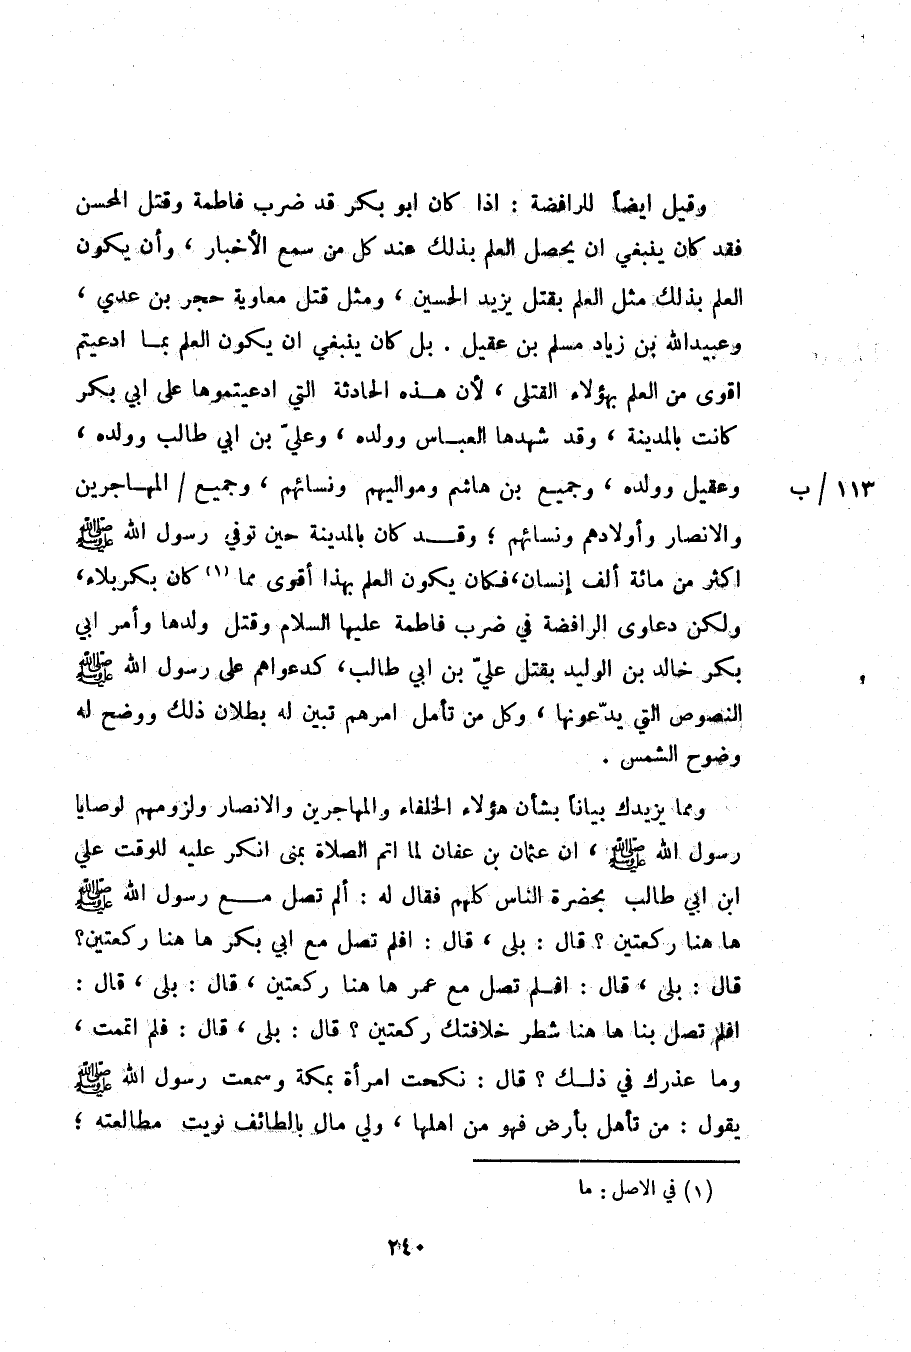 وقيل ايضاً للرافضة : اذا كان ابو بكر قد ضرب فاطمة وقتل المحسن
فقد كان ينبغي ان يحصل العلم بذلك عند كل من سمع الأخبار ، وأن يكون
العلم بذلك مثل العلم بقتل يزيد الحسين ، ومثل قتل معاوية حجر بن عدي ،
وعبيدالله بن زياد مسلم بن عقيل . بل كان ينبغي ان يكون العلم بما ادعيتم
اقوى من العلم بهؤلاء القتلى ، لأن هذه الحادثة التي ادعيتموها على ابي بكر
كانت بالمدينة ، وقد شهدها العباس وولده ، وعليّ بن ابي طالب وولده ،
وعقيل وولده ، وجميع بن هاشم ومواليهم ونسائهم ، وجميع / المهاجرين
١١٣ / ب
والانصار وأولادهم ونسائهم ؛ وقد كان بالمدينة حين توفي رسول الله ﷺ
اكثر من مائة ألف إنسان، فكان يكون العلم بهذا أقوى مما (١) كان بكربلاء،
ولكن دعاوى الرافضة في ضرب فاطمة عليها السلام وقتل ولدها وأمر ابي
بكر خالد بن الوليد بقتل عليّ بن ابي طالب، كدعواهم على رسول الله ﷺ
النصوص التي يدّعونها ، وكل من تأمل امرهم تبين له بطلان ذلك ووضح له
وضوح الشمس .
ومما يزيدك بياناً بشأن هؤلاء الخلفاء والمهاجرين والانصار ولزومهم لوصايا
رسول الله ﷺ ، ان عثمان بن عفان لما اتم الصلاة بمنى انكر عليه للوقت علي
ابن ابي طالب بحضرة الناس كلهم فقال له : ألم تصل مع رسول الله ﷺ
ها هنا ركعتين ؟ قال : بلى ، قال : افلم تصل مع ابي بكر ها هنا ركعتين؟
قال : بلى ، قال : افلم تصل مع عمر ها هنا ركعتين ، قال : بلى ، قال :
افلم تصل بنا ها هنا شطر خلافتك ركعتين ؟ قال : بلى ، قال : فلم اتممت ،
وما عذرك في ذلك ؟ قال : نكحت امرأة بمكة وسمعت رسول الله ﷺ
يقول : من تأهل بأرض فهو من اهلها ، ولي مال بالطائف نويت مطالعته ؛
(١) في الاصل : ما
٢٤٠